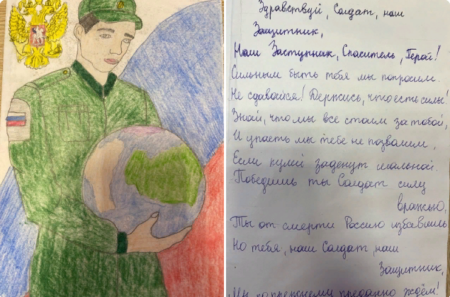 Здравствуй, Солдат, наш
Защитник,
Наш Заступник, Спаситель, Герой!
Сильным быть тебя мы попросим.
Не сдавайся! Держись, что есть силы!
Знай, что мы все стоим за тобой,
И упасть мы тебе не позволим.
Если пулей заденут шальной
Победишь ты Солдат силу
вражью,
Ты от смерти Россию избавишь
Но тебя, наш Солдат, наш
Защитник,
преданно ждём!